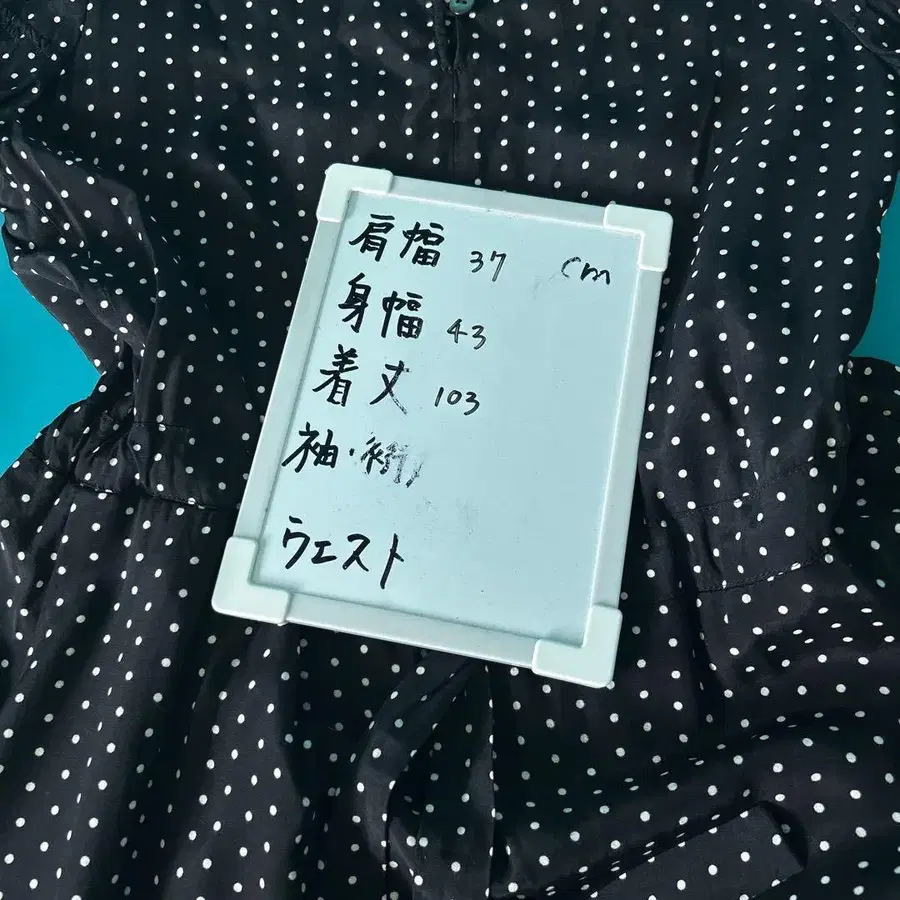 肩幅 37 cm
身幅 43
着丈 103
袖・裄
ウエスト